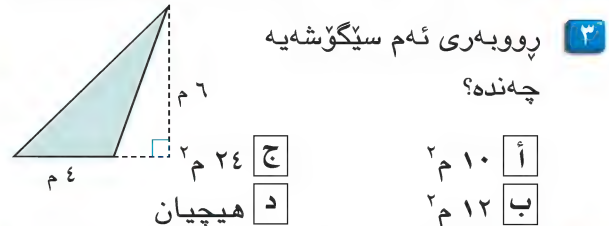 ٣ ڕووبەری ئەم سێگۆشەیە
چەندە؟
٦ م
٤ م
أ ١٠ م٢
ج ٢٤ م٢
ب ١٢ م٢
د هیچیان